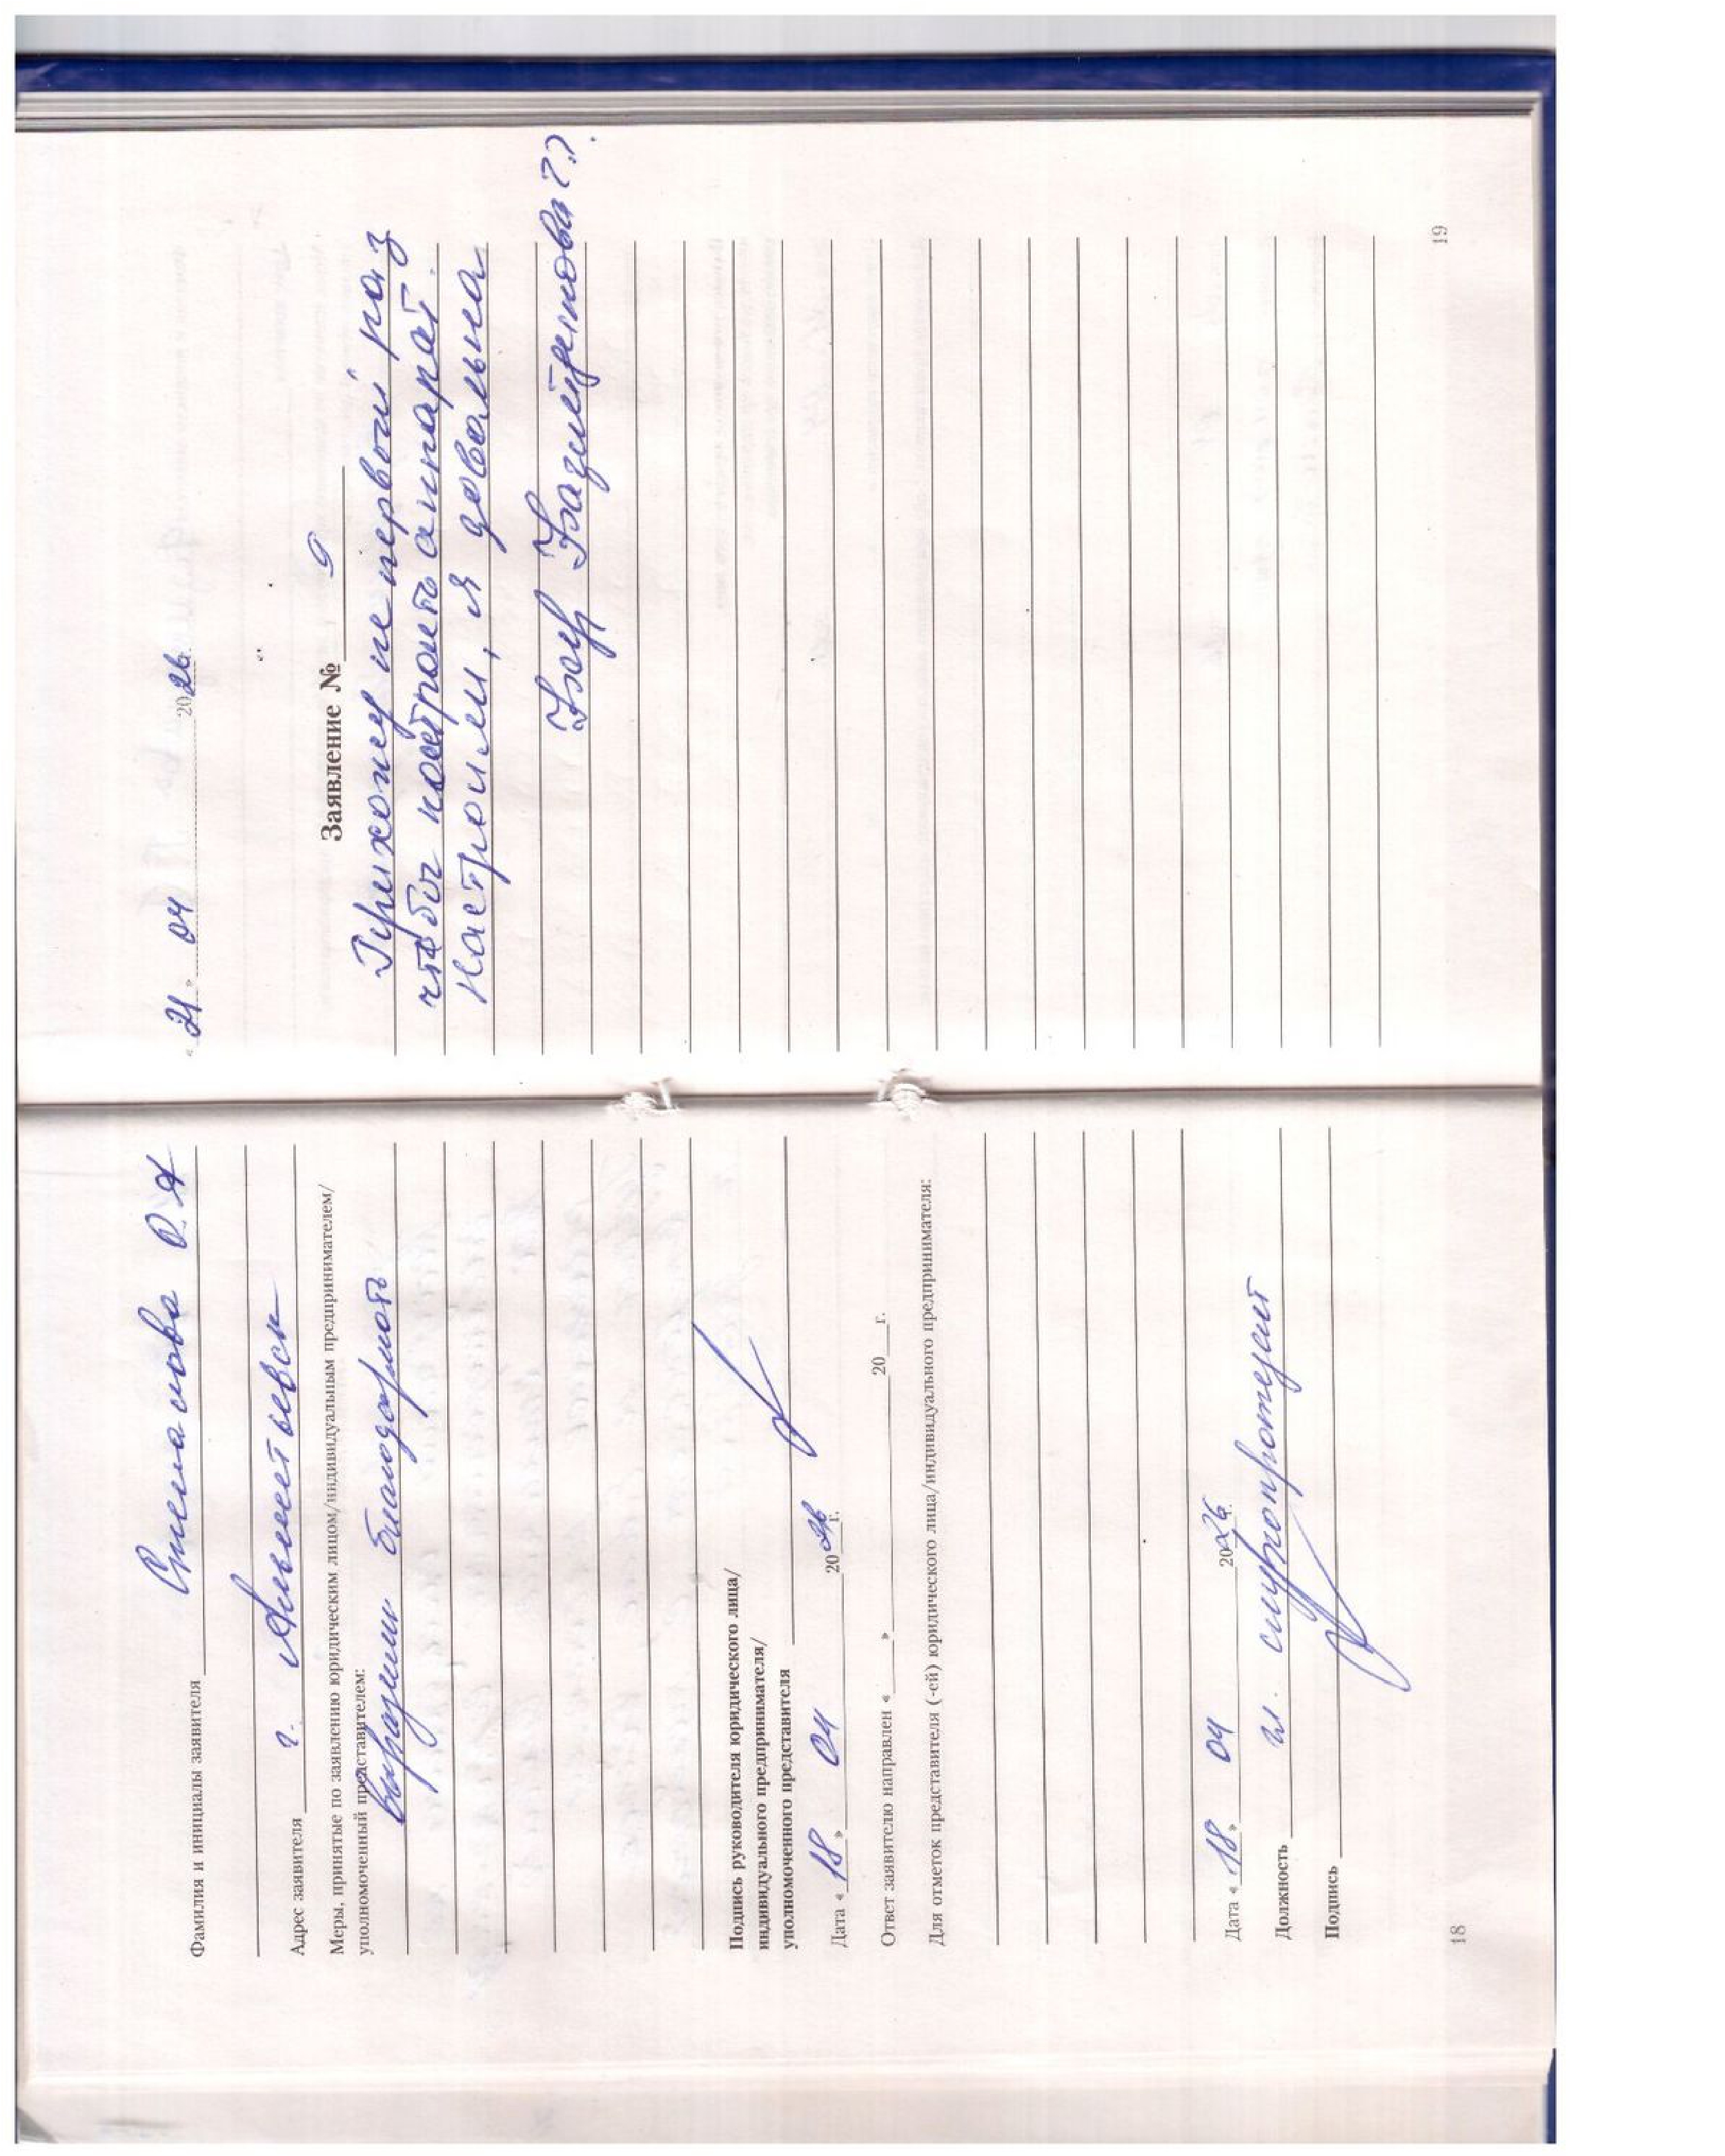 Фамилия и инициалы заявителя Степанова Р.А
Адрес заявителя г. Альметьевск
Меры, принятые по заявлению юридическим лицом/индивидуальным предпринимателем/
уполномоченный представителем:
выразили благодарность
Подпись руководителя юридического лица/
индивидуального предпринимателя/
уполномоченного представителя
Дата « 18 » 04 2026 г.
Ответ заявителю направлен « » 20 г.
Для отметок представителя (-ей) юридического лица/индивидуального предпринимателя:
Дата « 18 » 04 2026
Должность гл. слухопротезист
Подпись
18
« 21 » 04 2026
Заявление № 9
Прихожу не первый раз
чтобы настроить аппарат.
Настроили, я довольна
19